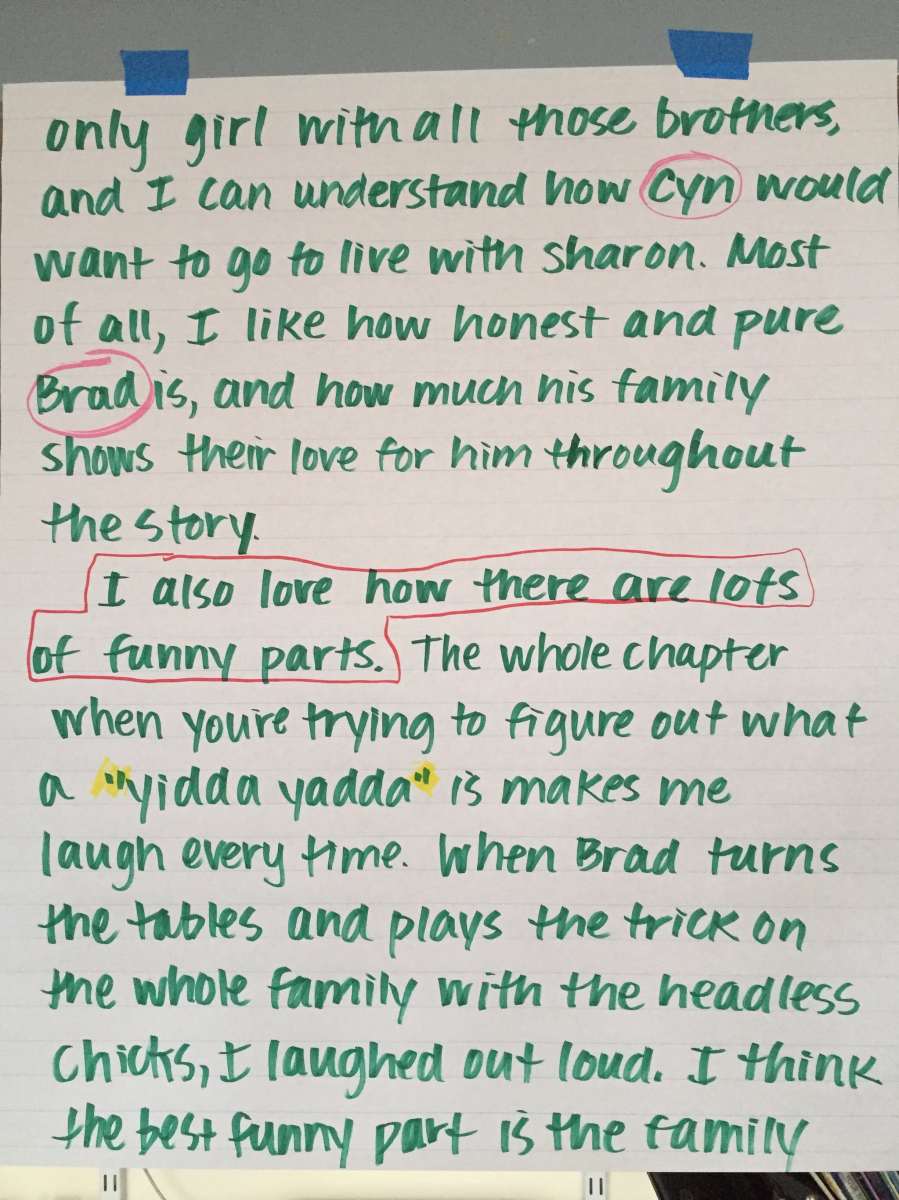 only girl with all those brothers,
and I can understand how Cyn would
want to go to live with sharon. Most
of all, I like how honest and pure
Brad is, and how much his family
shows their love for him throughout
the story.
I also love how there are lots
of funny parts. The whole chapter
when you're trying to figure out what
a "yidda yadda" is makes me
laugh every time. When Brad turns
the tables and plays the trick on
the whole family with the headless
chicks, I laughed out loud. I think
the best funny part is the family